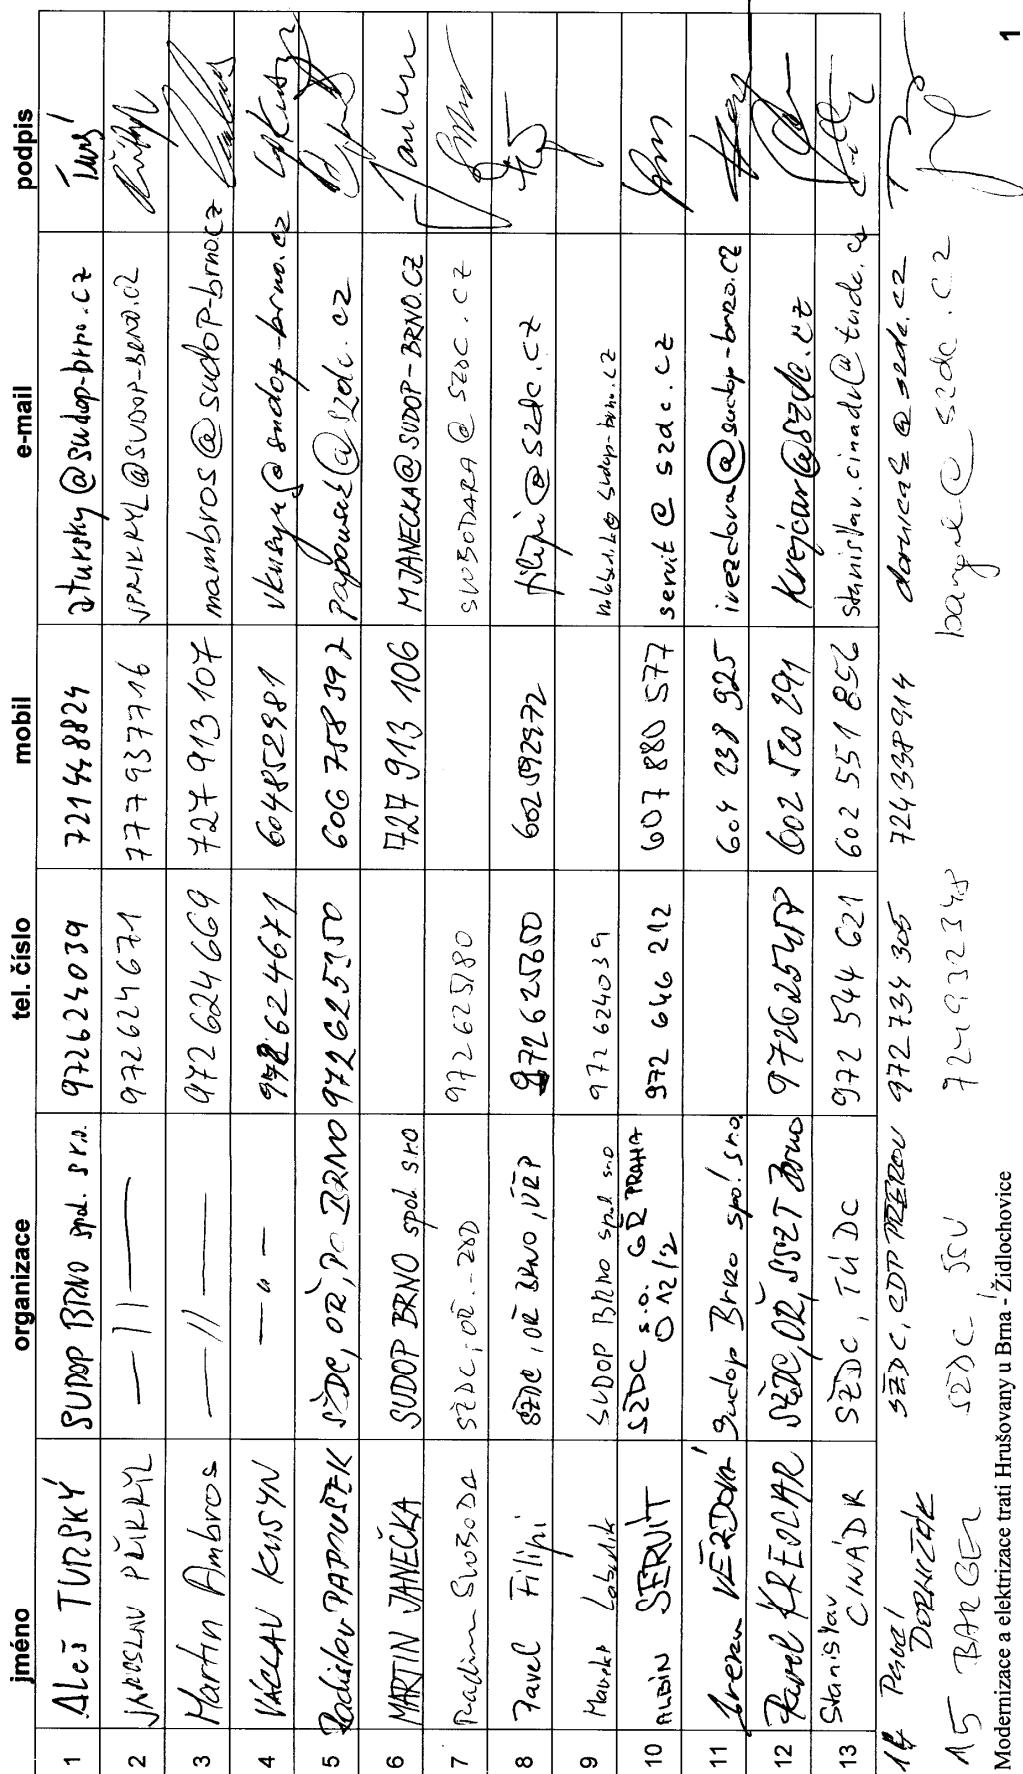 jméno organizace tel. číslo mobil e-mail podpis
1 Aleš TURSKÝ SUDOP BRNO spol. s r.o. 972624039 721448824 atursky@sudop-brno.cz
2 JAROSLAV PŘIKRYL — 11 — 972624671 777937716 JPRIKRYL@SUDOP-BRNO.CZ
3 Martin Ambros — 11 — 972 624 669 727 913 107 mambros@sudop-brno.cz
4 VÁCLAV KUSYN — " — 972 624671 604852981 vkusyn@sudop-brno.cz
5 Radislav PAPOUŠEK SŽDC, OŘ, PO BRNO 972625350 606 758 392 papousek@szdc.cz
6 MARTIN JANEČKA SUDOP BRNO spol. s r.o 727 913 106 MJANECKA@SUDOP-BRNO.CZ
7 Radim SVOBODA SŽDC, OŘ - 972 625180 SVOBODARA@SZDC.CZ
8 Pavel Filipi SŽDC, OŘ BRNO, 972625650 602592972 filipi@szdc.cz
9 SUDOP BRNO spol. s r.o 972 624039
10 ALBIN SERVÍT SŽDC s.o. GŘ PRAHA 972 646 212 607 880 577 servit@szdc.cz
O 12/2
11 VĚŽDOVÁ Sudop Brno spol. s r.o. 604 238 925 ivezdova@sudop-brno.cz
12 Pavel KREJČAR SŽDC, OŘ, SSZT Brno 602 520 291 Krejcar@szdc.cz
13 Stanislav SŽDC, TÚDC 972 544 621 602 551 856 stanislav.cinadr@tudc.cz
CINÁDR
14 Pavel SŽDC, CDP PŘEROV 972 734 305 724338914 dornicak@szdc.cz
DORNIČÁK
15 BARGEL SŽDC SSV 724932348 bargel@szdc.cz
Modernizace a elektrizace trati Hrušovany u Brna - Židlochovice
1